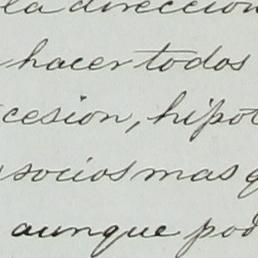 la direccion
hacer todos
cesion, hipot
socios mas q
aunque pod